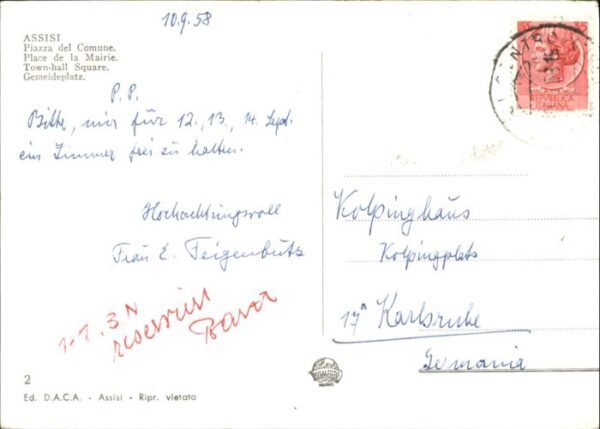 10.9.58
ASSISI
Piazza del Comune.
Place de la Mairie.
Town-hall Square.
Gemeideplatz.
P.P.
Bitte, mir für 12., 13., 14. Sept.
ein Zimmer frei zu halten.
Hochachtungsvoll
Frau E. Feigenbutz
1-1. 3N
reserviert
2
Ed. D.A.C.A. - Assisi - Ripr. vietata
35
REPUBBLICA
ITALIANA
CENTRO
Kolpinghaus
Kolpingplatz
17a Karlsruhe
Germania